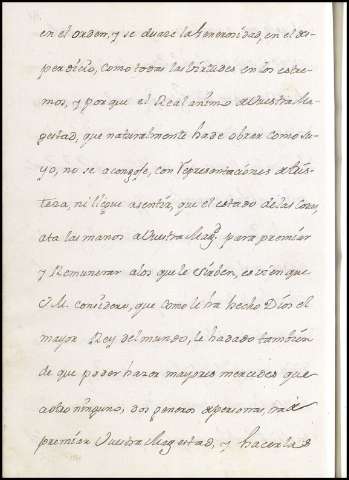 en el orden, y se dueze la henerosidad, en el des-
perdicio, como todas las Virtudes en los estre-
mos, y por que el Real animo de Vuestra Ma-
gestad, que naturalmente ha de obrar como su-
yo, no se acongoje, con Representaciones de tris-
teza, ni llegue a sentir, que el estado de las Cosas,
ata las manos a Vuestra Mag.d para premiar
y Remunerar a los que le Sirben, es vien que
V.M. considere, que como le ha hecho Dios el
mayor Rey del mundo, le ha dado tambien
de que poder hazer mayores mercedes que
a otro ninguno, dos generos de personas, ha de
premiar Vuestra Magestad, y hacerlas